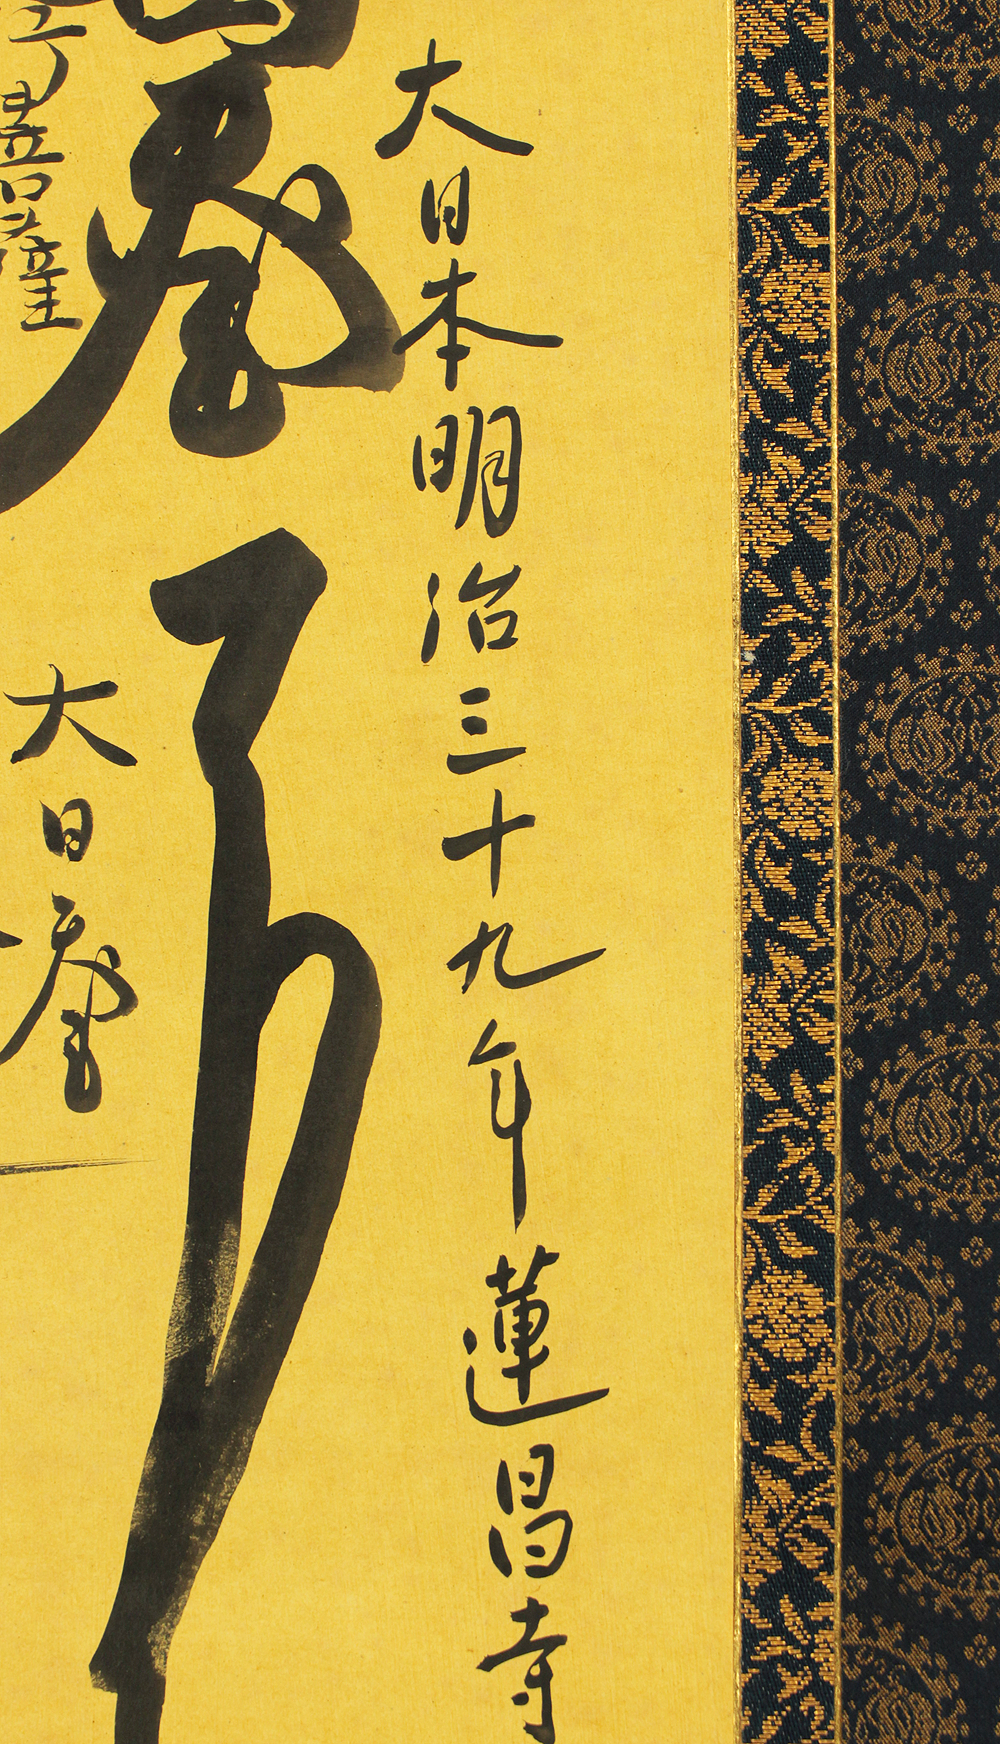 大日本明治三十九年蓮昌寺
天王
菩薩
大日天王